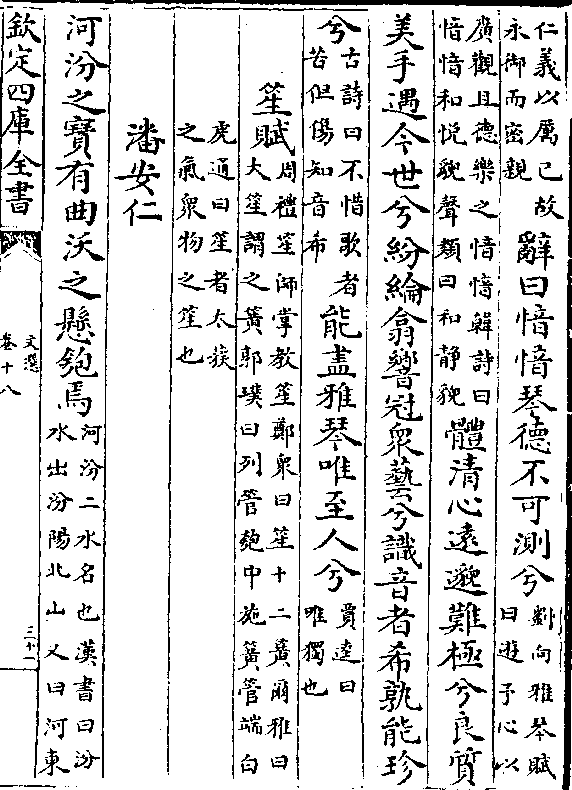 仁義以厲已故
永御而密親
辭曰愔愔琴德不可測兮
劉向雅琴賦
曰遊予心以
廣觀且德樂之愔愔韓詩曰
愔愔和悅貌聲類曰和静貌
體清心遠邈難極兮良質
美手遇今世兮紛綸翕響冠衆藝兮識音者希孰能珍
兮
古詩曰不惜歌者
苦但傷知音希
能盡雅琴唯至人兮
賈逵曰
唯獨也
笙賦
周禮笙師掌教笙鄭衆曰笙十二簧爾雅曰
大笙謂之簧郭璞曰列管匏中施簧管端白
虎通曰笙者太蔟
之氣衆物之笙也
潘安仁
河汾之寳有曲沃之懸匏焉
河汾二水名也漢書曰汾
水出汾陽北山又曰河東
欽定四庫全書
文選
卷十八
三十二